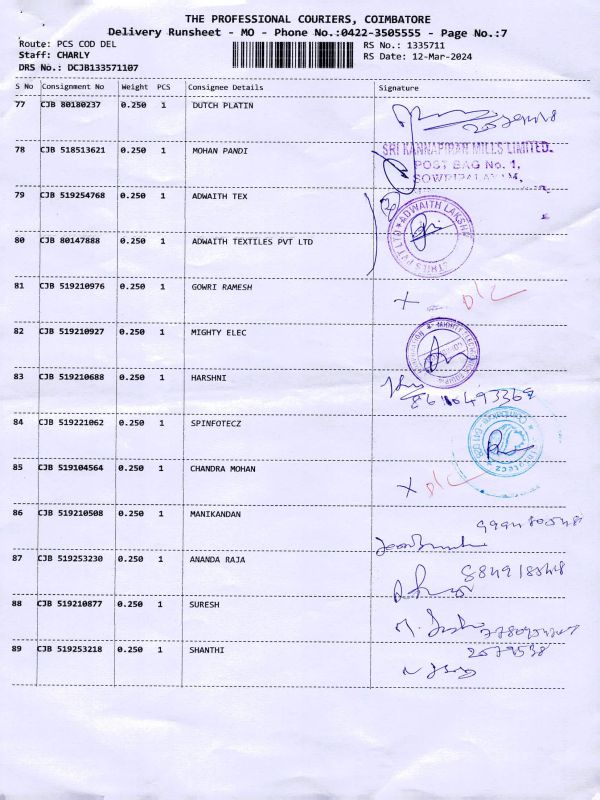 THE PROFESSIONAL COURIERS, COIMBATORE
Delivery Runsheet - MO - Phone No.:0422-3505555 - Page No.:7
Route: PCS COD DEL
RS No.: 1335711
Staff: CHARLY
RS Date: 12-Mar-2024
DRS No.: DCJB133571107
S No Consignment No Weight PCS Consignee Details Signature
77 CJB 80180237 0.250 1 DUTCH PLATIN
78 CJB 518513621 0.250 1 MOHAN PANDI
SRI KANNAPIRAN MILLS LIMITED.
POST BAG No. 1,
SOWRIPALAYAM,
79 CJB 519254768 0.250 1 ADWAITH TEX
ADWAITH LAKSHMI
80 CJB 80147888 0.250 1 ADWAITH TEXTILES PVT LTD
81 CJB 519210976 0.250 1 GOWRI RAMESH
X D/C
82 CJB 519210927 0.250 1 MIGHTY ELEC
83 CJB 519210688 0.250 1 HARSHNI
84 CJB 519221062 0.250 1 SPINFOTECZ
85 CJB 519104564 0.250 1 CHANDRA MOHAN
X D/C
86 CJB 519210508 0.250 1 MANIKANDAN
87 CJB 519253230 0.250 1 ANANDA RAJA
88 CJB 519210877 0.250 1 SURESH
89 CJB 519253218 0.250 1 SHANTHI
2579538